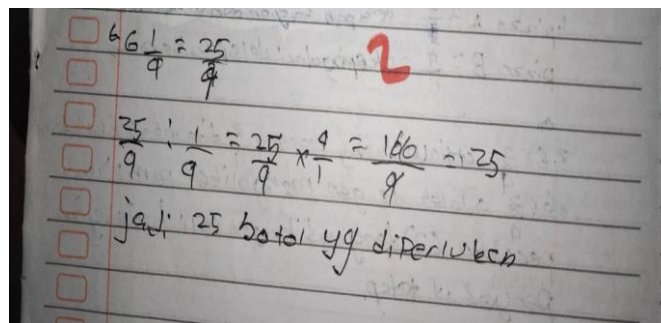 6 6 1/4 = 25/4 2
25/4 : 1/4 = 25/4 × 4/1 = 100/4 = 25
jadi 25 botol yg diperlukan